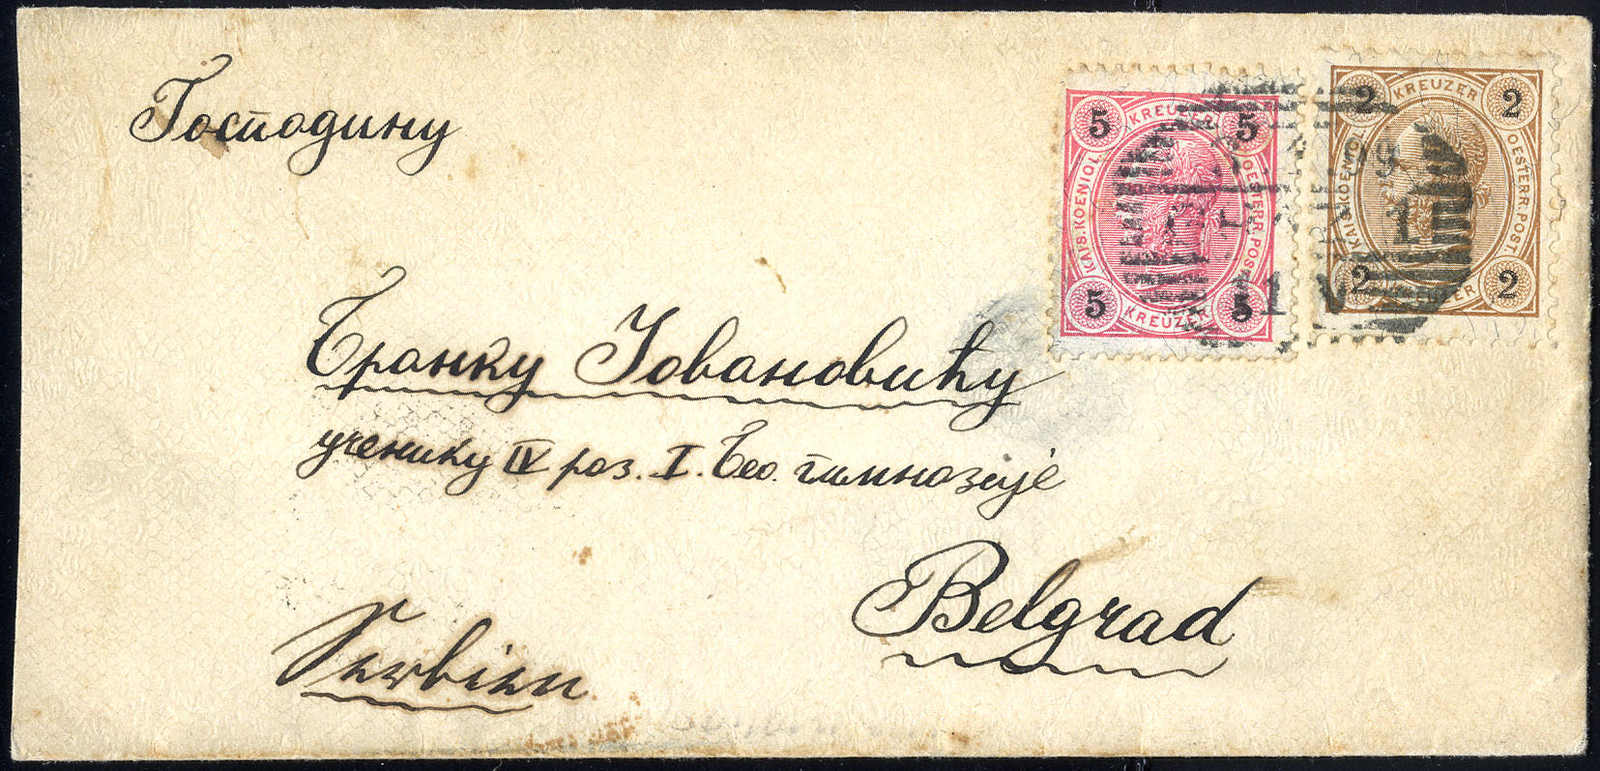 Господину
Бранку Јовановићу
ученику IV раз. I. Бео. гимназије
Belgrad
Serbien
5 KREUZER 5
KAIS. KOENIGL. OESTERR. POST.
5 KREUZER 5
2 KREUZER 2
KAIS. KOENIGL. OESTERR. POST.
2 KREUZER 2